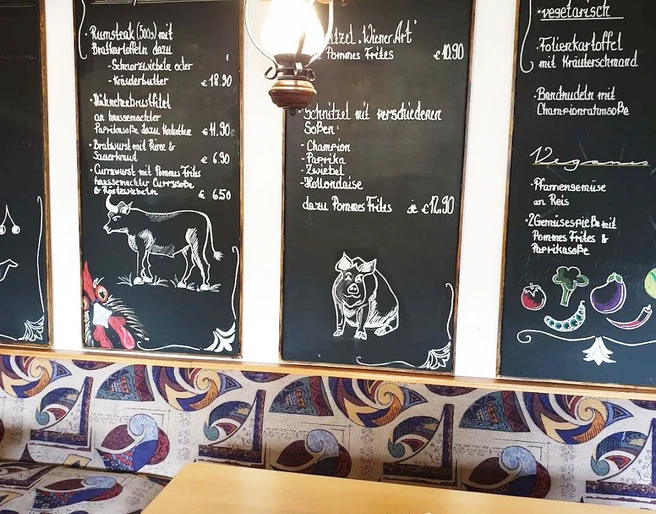 · Rumsteak (300g) mit
Bratkartoffeln dazu
- Schmorzwiebeln oder
- Kräuterbutter € 18.90
· Hähnchenbrustfilet
an hausgemachter
Paprikasoße dazu Kroketten € 11.90
· Bratwurst mit Püree &
Sauerkraut € 6.90
· Currywurst mit Pommes Frites
hausgemachter Currysoße
& Röstzwiebeln € 6.50
"Wiener Art"
Pommes Frites € 10.90
· Schnitzel mit verschiedenen
Soßen:
- Champion
- Paprika
- Zwiebel
- Hollondaise
dazu Pommes Frites je € 12.90
· vegetarisch
· Folienkartoffel
mit Kräuterschmand
· Bandnudeln mit
Championrahmsoße
Vegan
· Pfannengemüse
an Reis
· 2 Gemüsespieße mit
Pommes Frites &
Paprikasoße